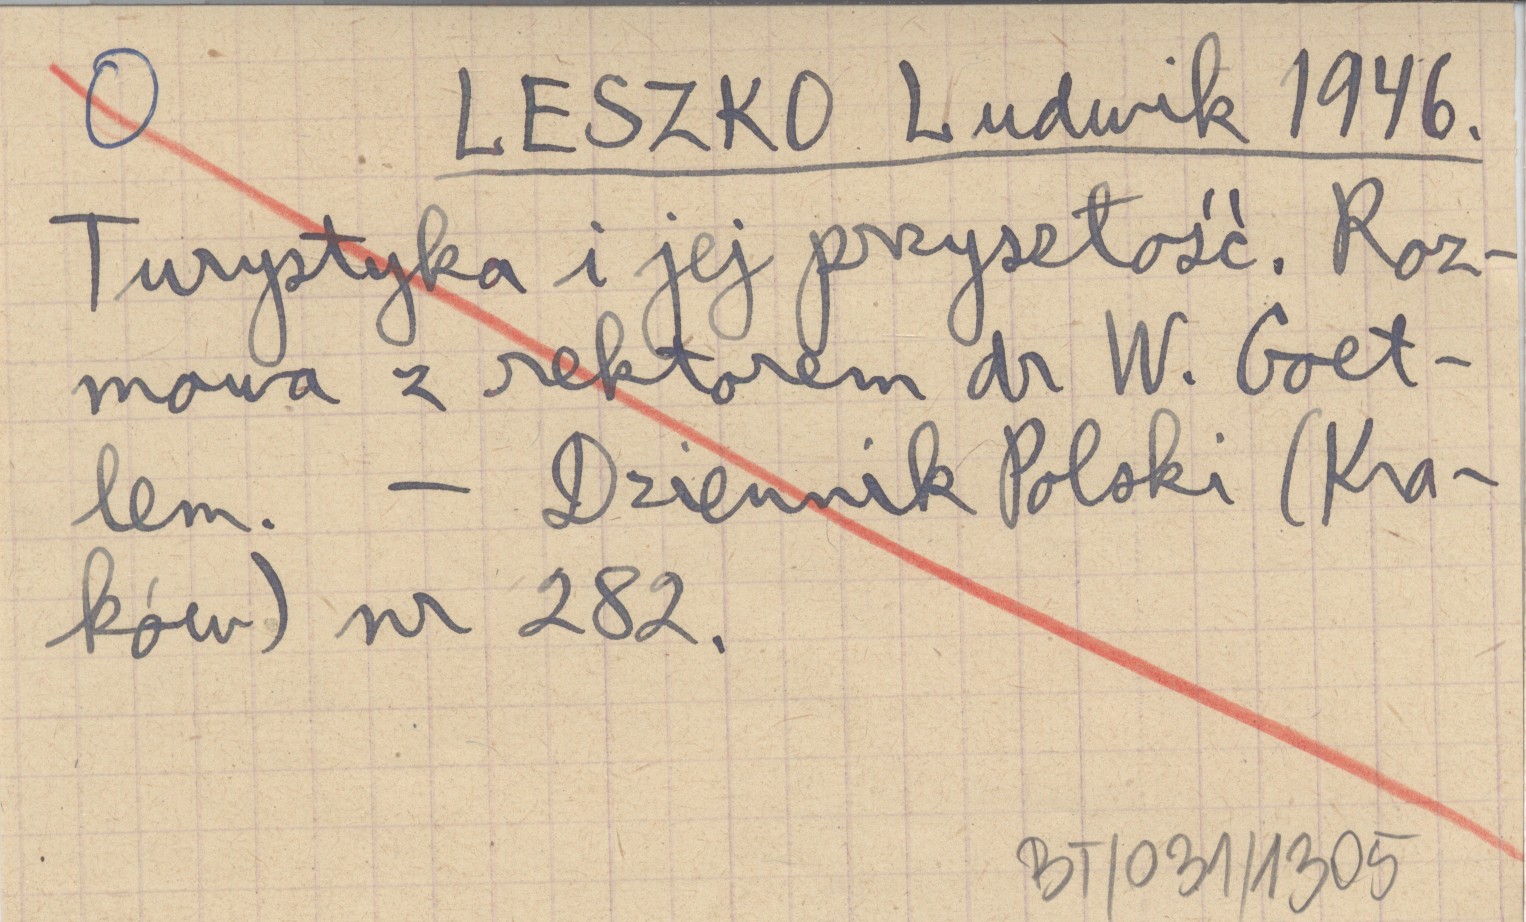 O LESZKO Ludwik 1946.
Turystyka i jej przyszłość. Roz-
mowa z rektorem dr W. Goet-
lem. — Dziennik Polski (Kra-
ków) nr 282.
BT/031/1305